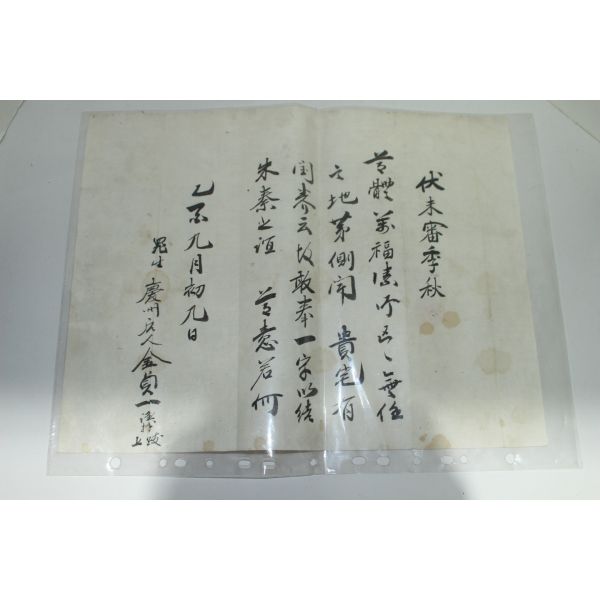 伏未審季秋
尊體萬福溸仰區々無任
之地第側聞 貴宅有
閨養云故敢奉一字以結
朱秦之誼 尊意若何
乙 九月初九日
慶州后人金貞一 上